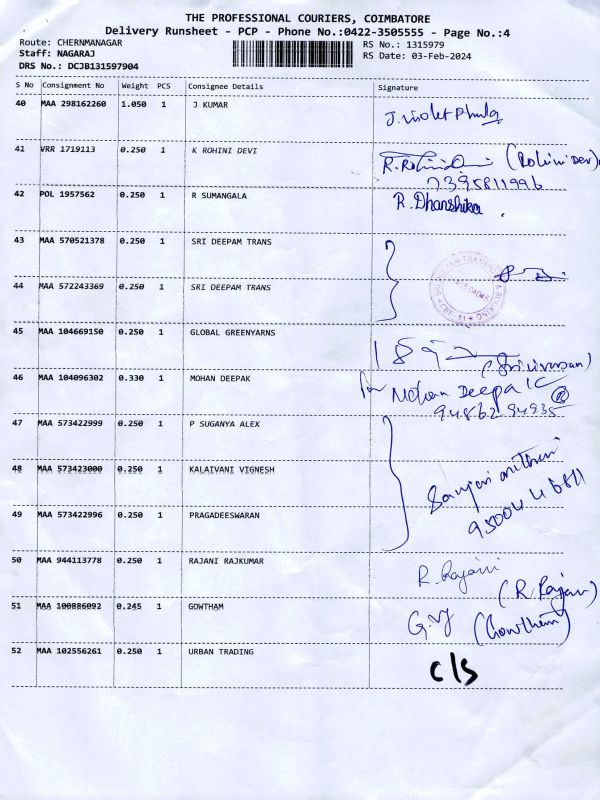 THE PROFESSIONAL COURIERS, COIMBATORE
Delivery Runsheet - PCP - Phone No.:0422-3505555 - Page No.:4
Route: CHERNMANAGAR
RS No.: 1315979
Staff: NAGARAJ
RS Date: 03-Feb-2024
DRS No.: DCJB131597904
S No Consignment No Weight PCS Consignee Details Signature
40 MAA 298162260 1.050 1 J KUMAR J.violet
41 VRR 1719113 0.250 1 K ROHINI DEVI (Rohini Dev)
7395811996
42 POL 1957562 0.250 1 R SUMANGALA R. Dhanshika
43 MAA 570521378 0.250 1 SRI DEEPAM TRANS
44 MAA 572243369 0.250 1 SRI DEEPAM TRANS
45 MAA 104669150 0.250 1 GLOBAL GREENYARNS
(Srinivasan)
46 MAA 104096302 0.330 1 MOHAN DEEPAK for Mohan Deepak
94862 94935
47 MAA 573422999 0.250 1 P SUGANYA ALEX
48 MAA 573423000 0.250 1 KALAIVANI VIGNESH
49 MAA 573422996 0.250 1 PRAGADEESWARAN
50 MAA 944113778 0.250 1 RAJANI RAJKUMAR R. Rajani
(R. Rajani)
51 MAA 100886092 0.245 1 GOWTHAM
(Gowtham)
52 MAA 102556261 0.250 1 URBAN TRADING c/s